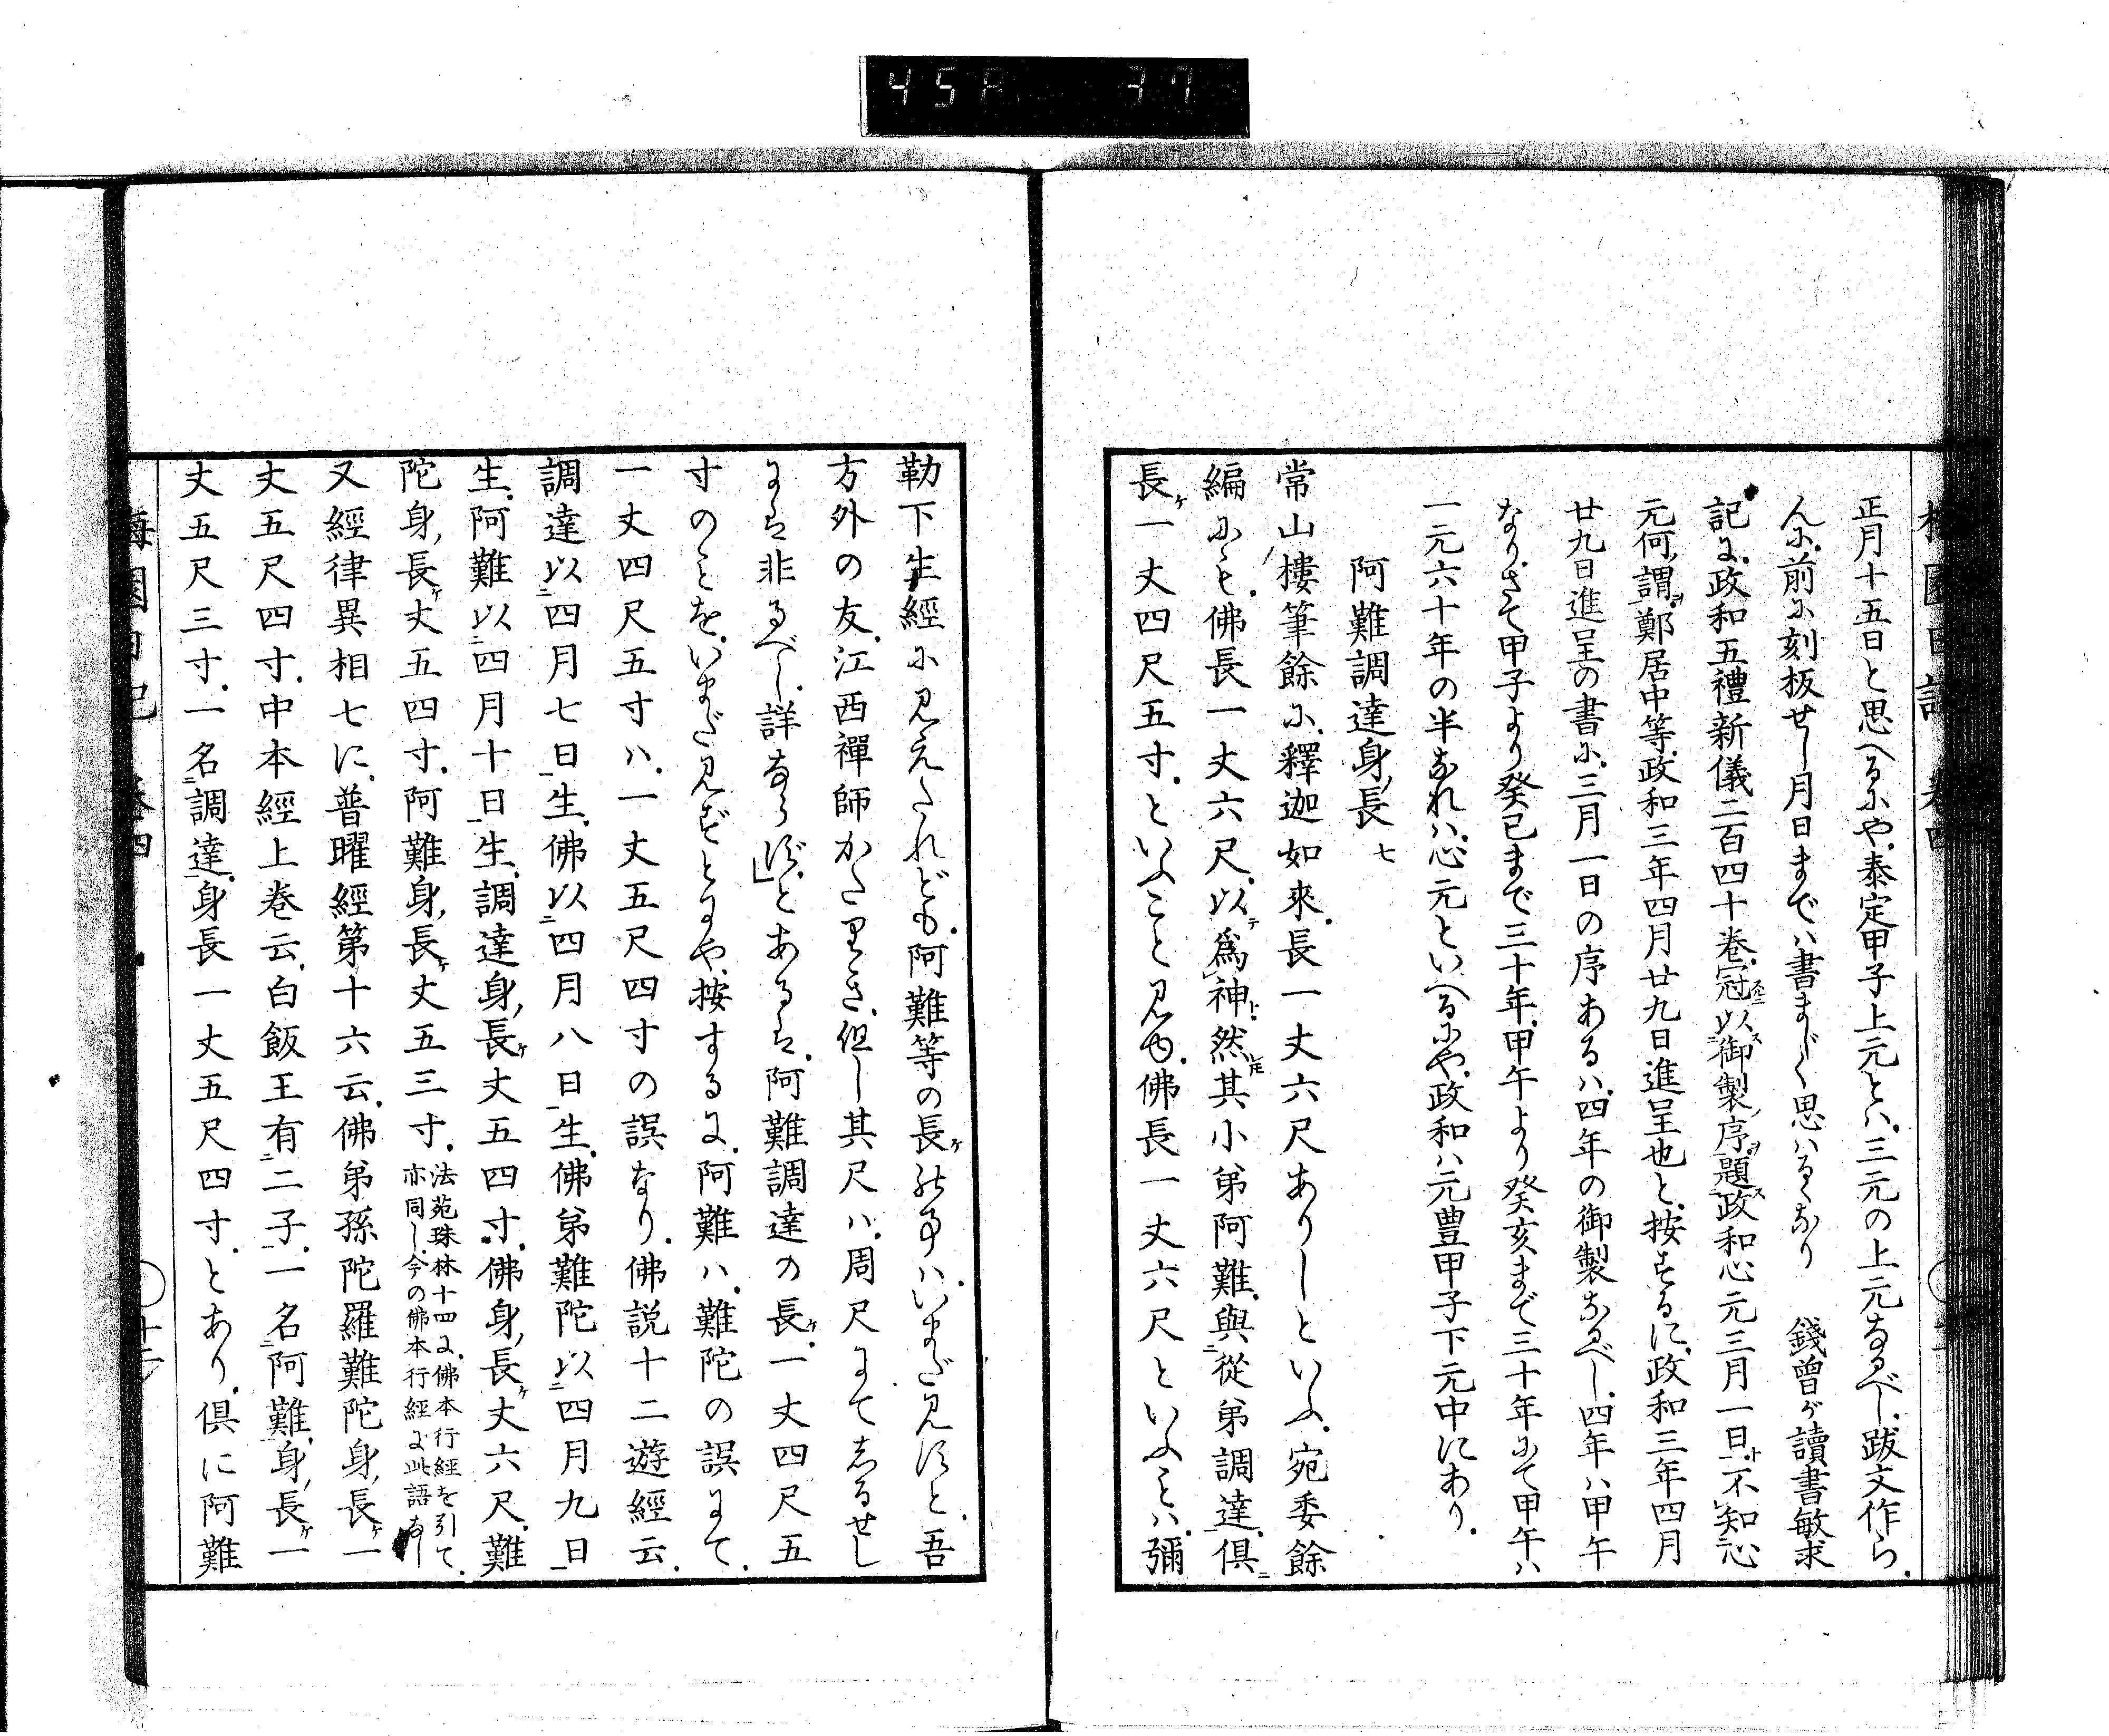 45R 37
梅園日記 卷四
正月十五日と思へるにや、泰定甲子上元とハ、三元の上元なるべし、跋文作ら
んに、前に刻板せし月日までハ書まじく思ハるゝなり 錢曾が讀書敏求
記に、政和五禮新儀二百四十卷、冠以御製序、題政和心元三月一日、不知心
元何謂、鄭居中等、政和三年四月廿九日進呈也と、按ずるに、政和三年四月
廿九日進呈の書に、三月一日の序あるハ、四年の御製なるべし、四年ハ甲午
なり、さて甲子より癸巳まで三十年、甲午より癸亥まで三十年にて甲午ハ
一元六十年の半なれハ、心元といへるにや、政和ハ元豊甲子下元中にあり、
阿難調達身ノ長 七
常山樓筆餘に、釋迦如來、長一丈六尺ありしといふ、宛委餘
編にも、佛長一丈六尺、以爲神、然其小弟阿難、與從弟調達、倶
長ケ一丈四尺五寸、といふこと見ゆ、佛長一丈六尺といふことハ、彌
勒下生經に見えたれども、阿難等の長ケの事ハ、いまだ見ずと、吾
方外の友、江西禪師かたりき、但し其尺ハ、周尺にてしるせし
にハ非るべし、詳ならず」とあるハ、阿難調達の長ケ、一丈四尺五
寸のことを、いまだ見ずとにや、按ずるに、阿難ハ、難陀の誤にて、
一丈四尺五寸ハ、一丈五尺四寸の誤なり、佛説十二遊經云、
調達以四月七日生、佛以四月八日生、佛弟難陀以四月九日
生、阿難以四月十日生、調達身ノ長ケ丈五四寸、佛身ノ長ケ丈六尺、難
陀身ノ長ケ丈五四寸、阿難身ノ長ケ丈五三寸、法苑珠林十四に、佛本行經を引て、
亦同し、今の佛本行經に此語なし
又經律異相七に、普曜經第十六云、佛弟孫陀羅難陀身ノ長ケ一
丈五尺四寸、中本經上卷云、白飯王有二子、一名阿難、身ノ長ケ一
丈五尺三寸、一名調達、身長一丈五尺四寸、とあり、倶に阿難
梅園日記 卷四